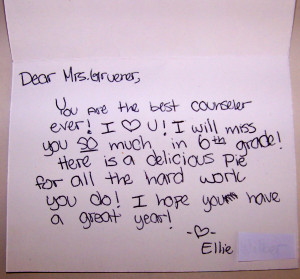 Dear Mrs. Gruener,
You are the best counseler
ever! I ♡ U! I will miss
you SO much in 6th grade!
Here is a delicious pie
for all the hard work
you do! I hope you have
a great year!
-♡-
Ellie